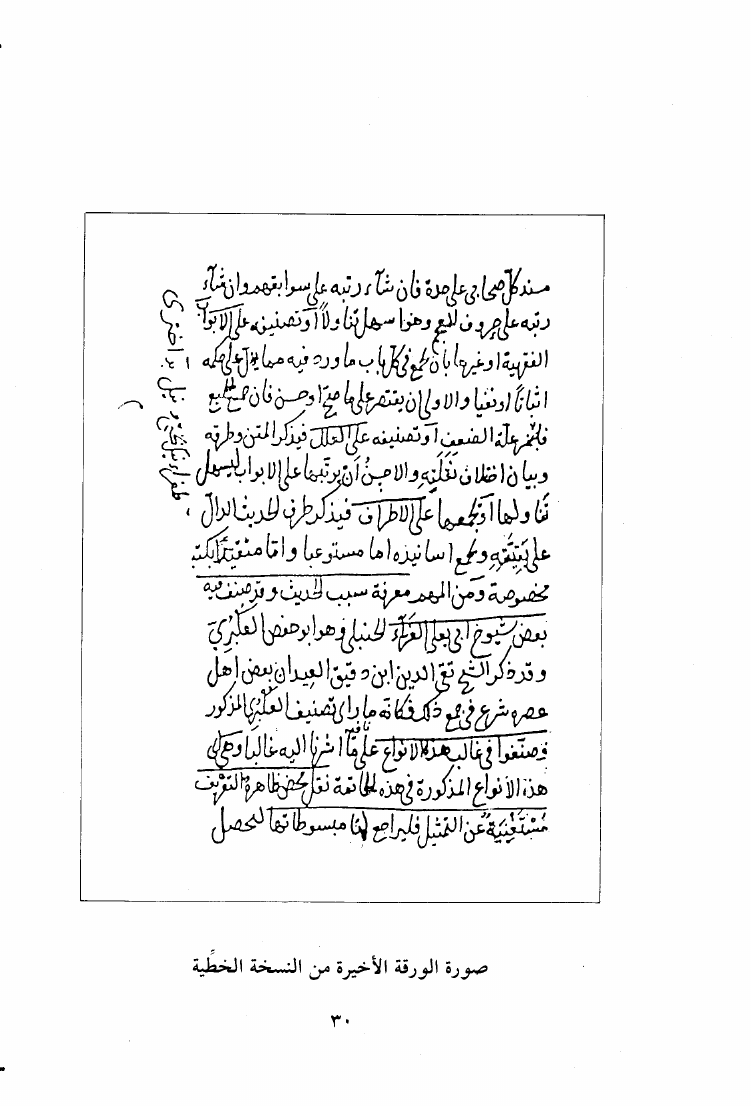 مسند كل صحابي على حدة فان شاء رتبه على سوابقهم وان شاء
رتبه على حروف المعجم وهو اسهل تناولا او تصنيفه على الابواب
الفقهية او غيرها بأن يجمع في كل باب ما ورد فيه مما يدل على حكمه
اثباتا او نفيا والاولى ان يقتصر على ما صح او حسن فان جمع الجميع
فليبين علة الضعف او تصنيفه على العلل فيذكر المتن وطرقه
وبيان اختلاف نقلته والاحسن أن يرتبها على الابواب ليسهل
تناولها أو يجمعها على الاطراف فيذكر طرف الحديث الدال
على بقيته ويجمع اسانيده اما مستوعبا واما متقيدا بكتب
مخصوصة ومن المهم معرفة سبب الحديث وقد صنف فيه
بعض شيوخ ابي يعلى الفراء الحنبلي وهو ابو حفص العكبري
وقد ذكر الشيخ تقي الدين ابن دقيق العيد ان بعض اهل
عصره شرع في جمع ذلك فكانه ما راى تصنيف العكبري المذكور
وصنفوا في غالب هذه الانواع على ما اشرنا اليه غالبا وهي اي
هذه الأنواع المذكورة في هذه الخاتمة نقل محض ظاهرة التعريف
مستغنية عن التمثيل فليراجع لها مبسوطاتها ليحصل
صورة الورقة الأخيرة من النسخة الخطِّية
٣٠